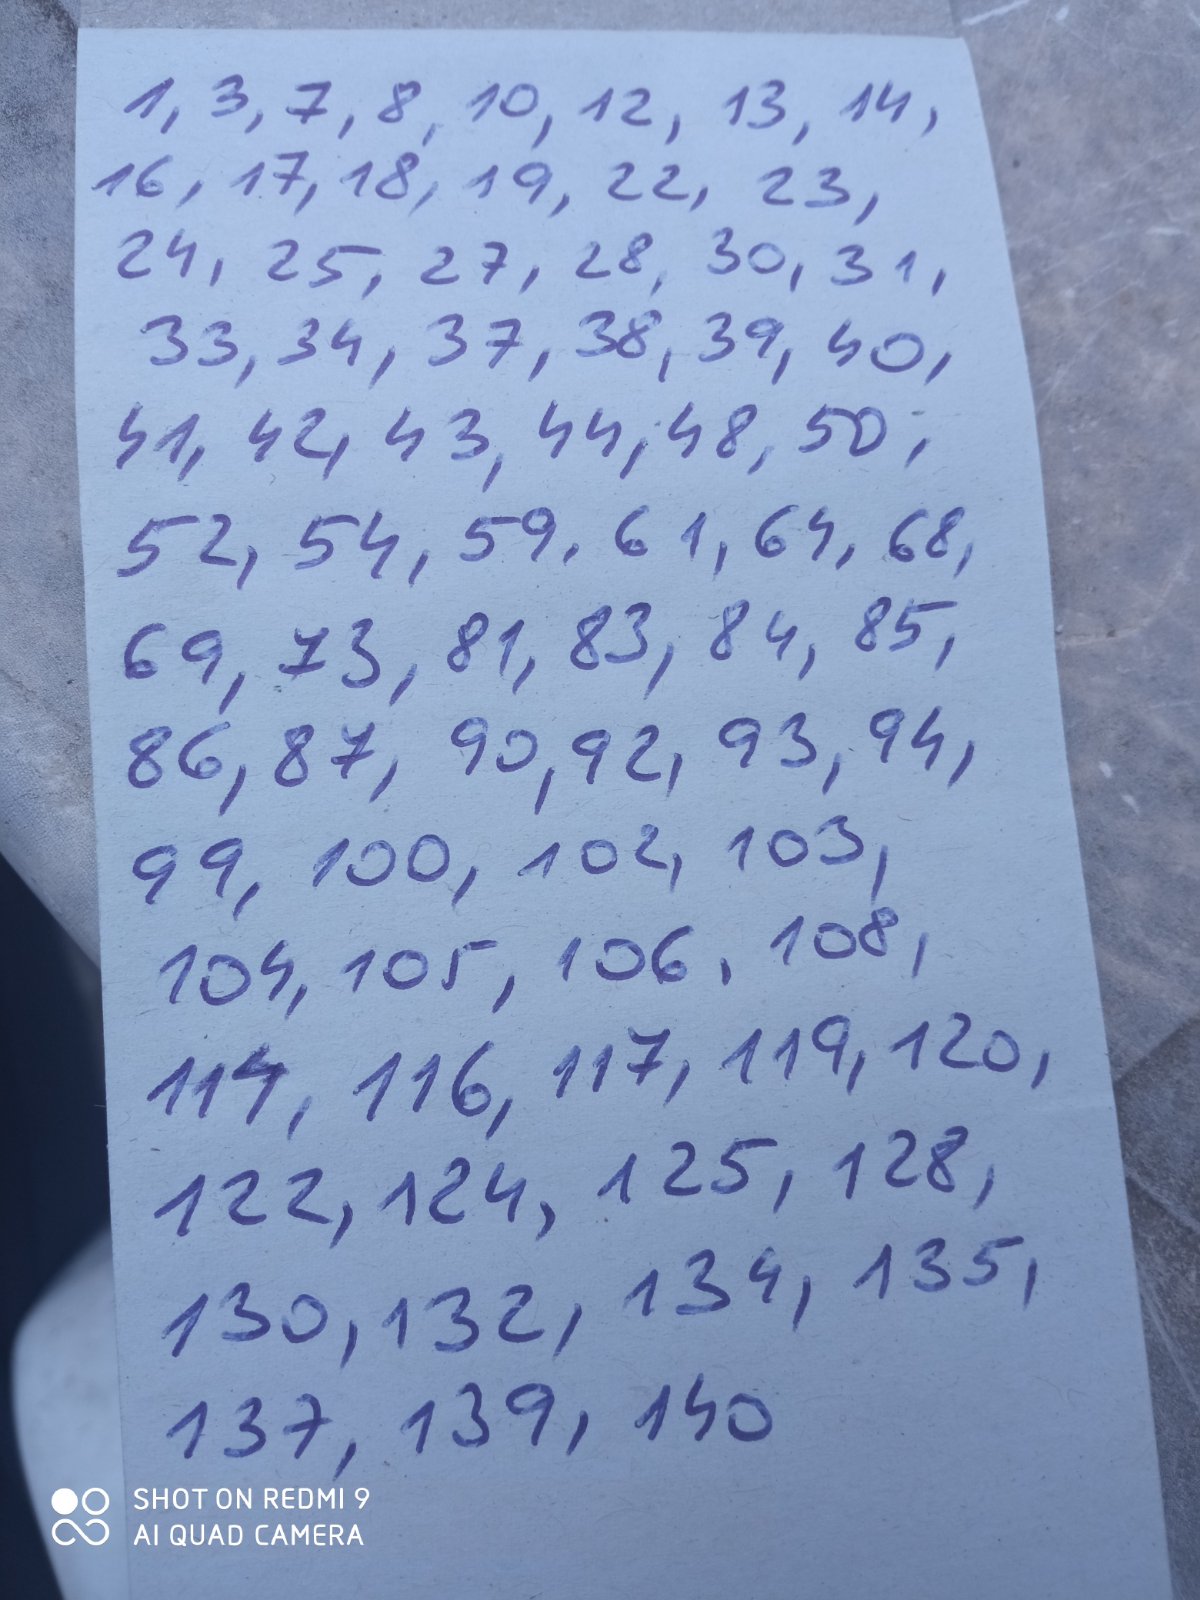 1, 3, 7, 8, 10, 12, 13, 14,
16, 17, 18, 19, 22, 23,
24, 25, 27, 28, 30, 31,
33, 34, 37, 38, 39, 40,
41, 42, 43, 44, 48, 50,
52, 54, 59, 61, 64, 68,
69, 73, 81, 83, 84, 85,
86, 87, 90, 92, 93, 94,
99, 100, 102, 103,
104, 105, 106, 108,
114, 116, 117, 119, 120,
122, 124, 125, 128,
130, 132, 134, 135,
137, 139, 140
SHOT ON REDMI 9
AI QUAD CAMERA